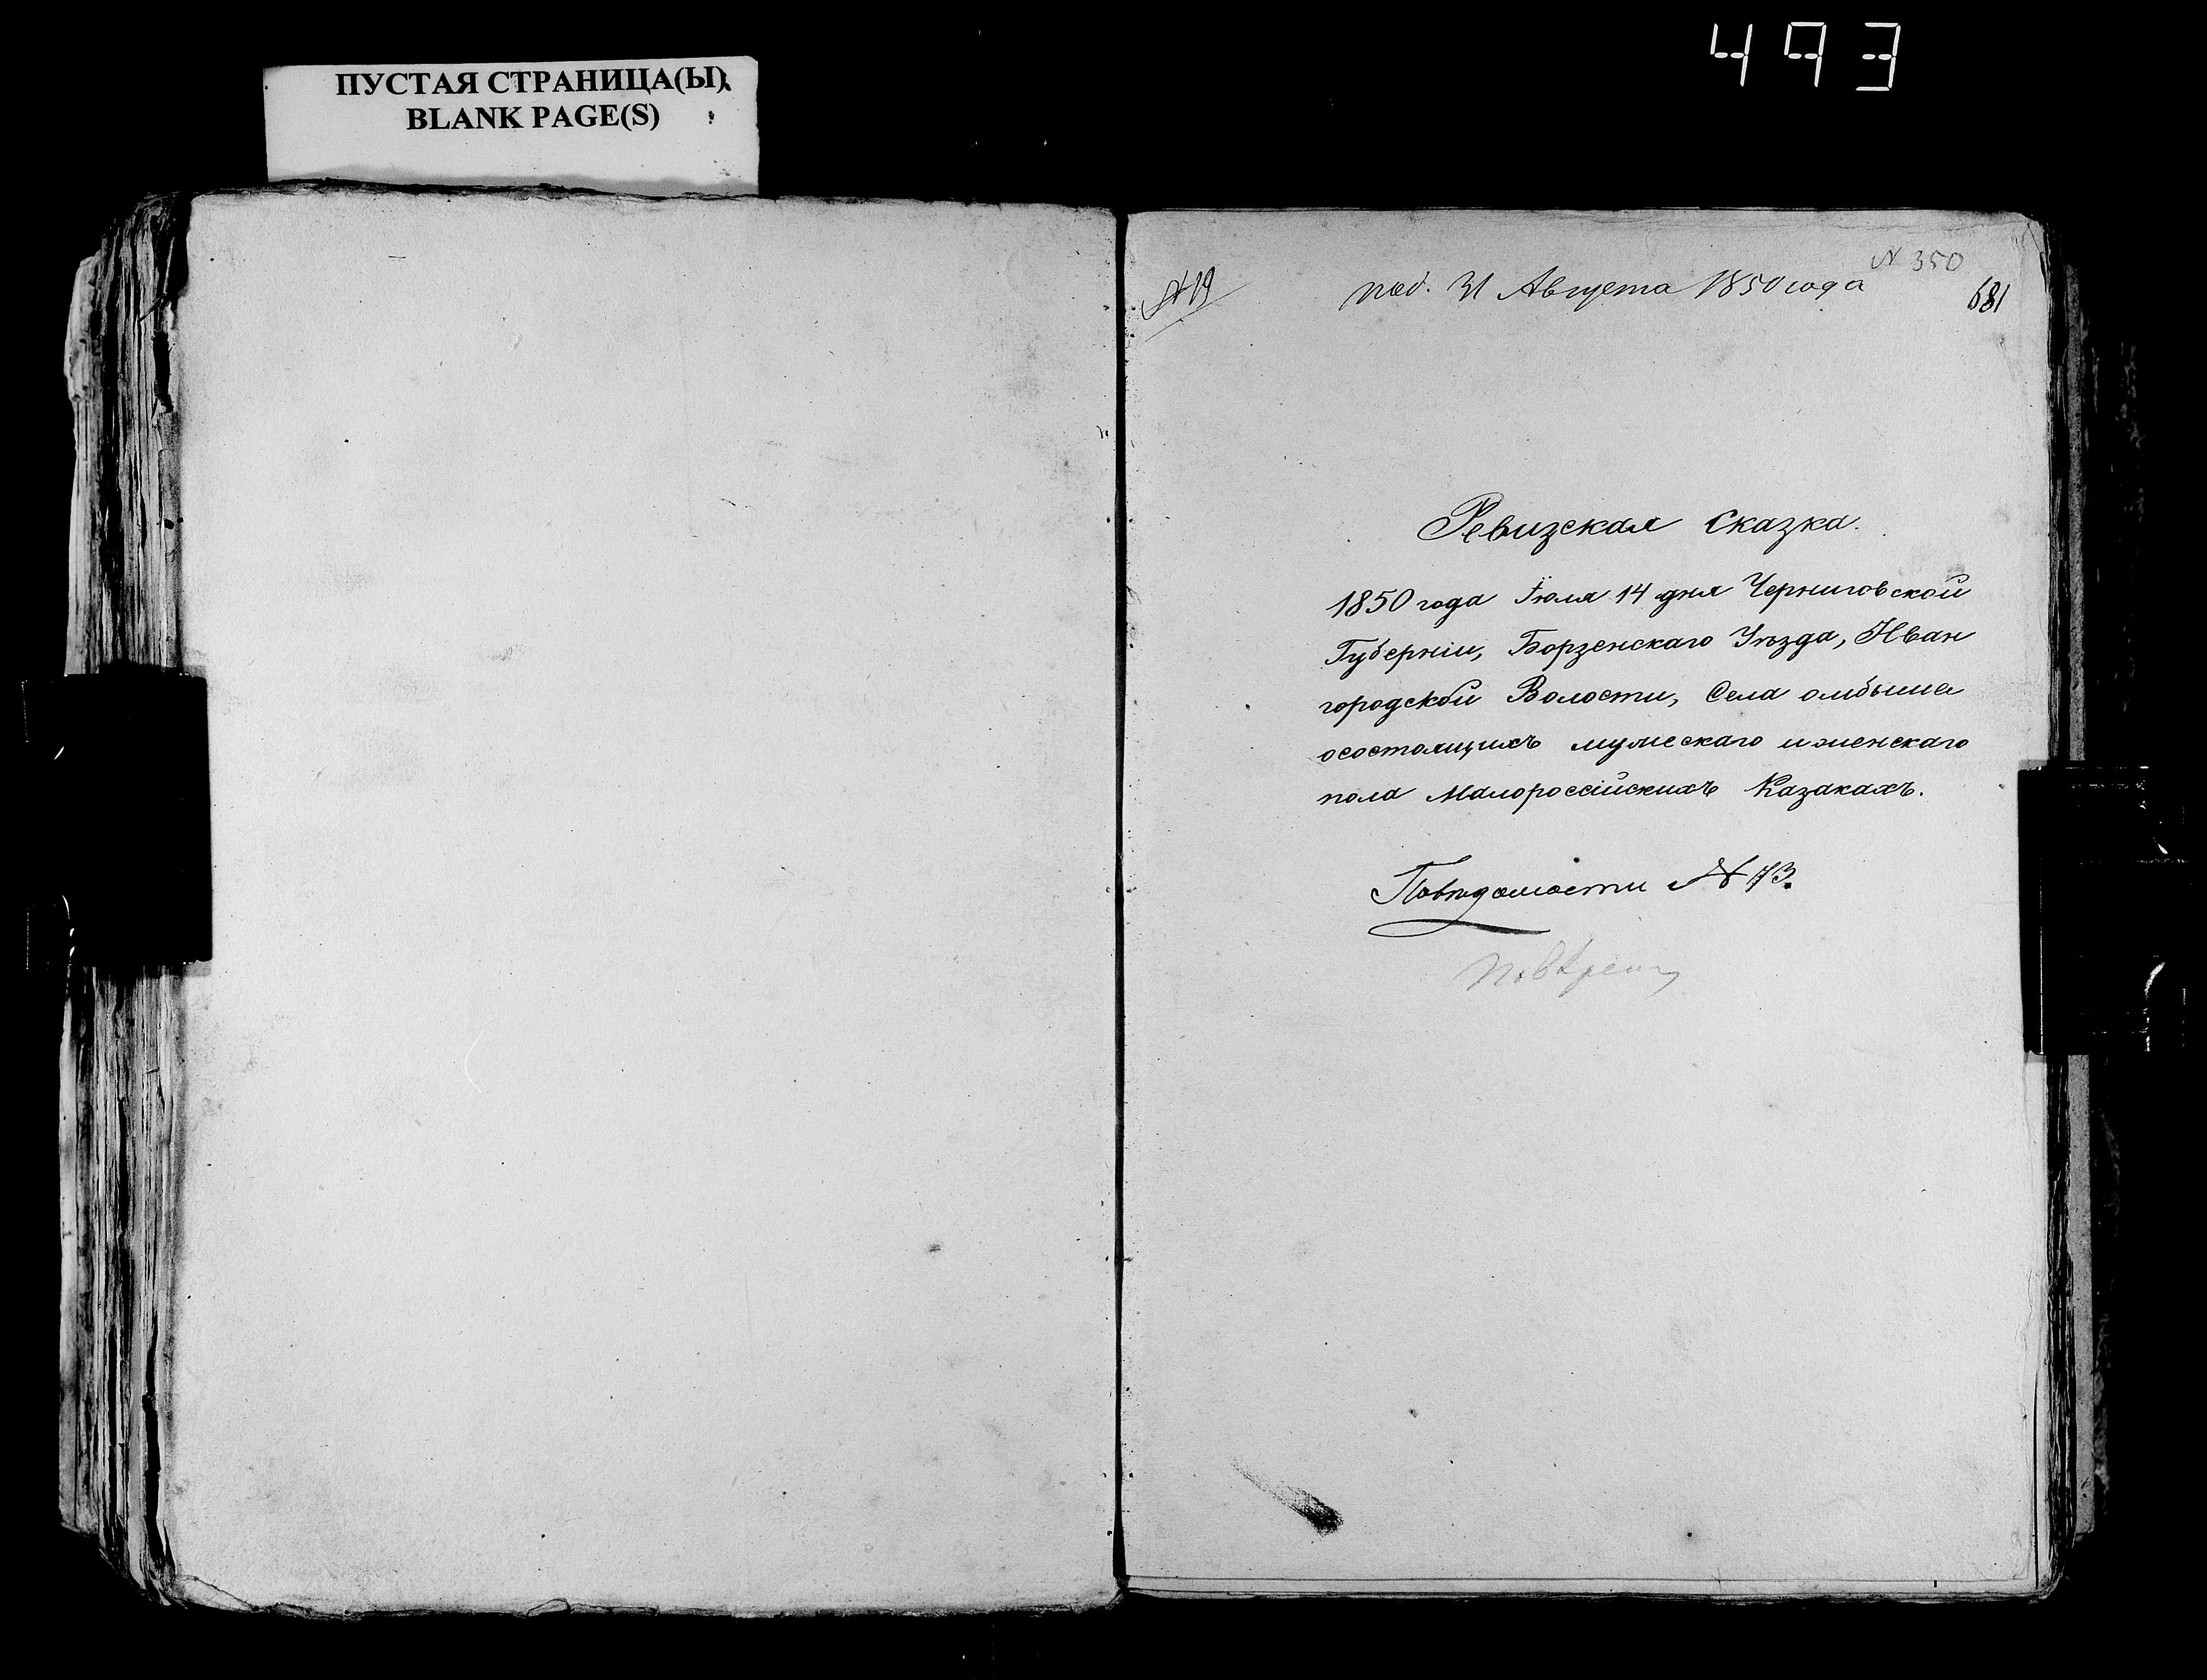 ПУСТАЯ СТРАНИЦА(Ы)
BLANK PAGE(S)
493
№ 350
№ 19
под. 31 Августа 1850 года
681
Ревизская Сказка.
1850 года Іюля 14 дня Черниговской
Губерніи, Борзенскаго Уѣзда, Иван
городской Волости, Села омбыша
осостоящихъ мужескаго иженскаго
пола Малороссійскихъ Казакахъ.
Повѣдомости №